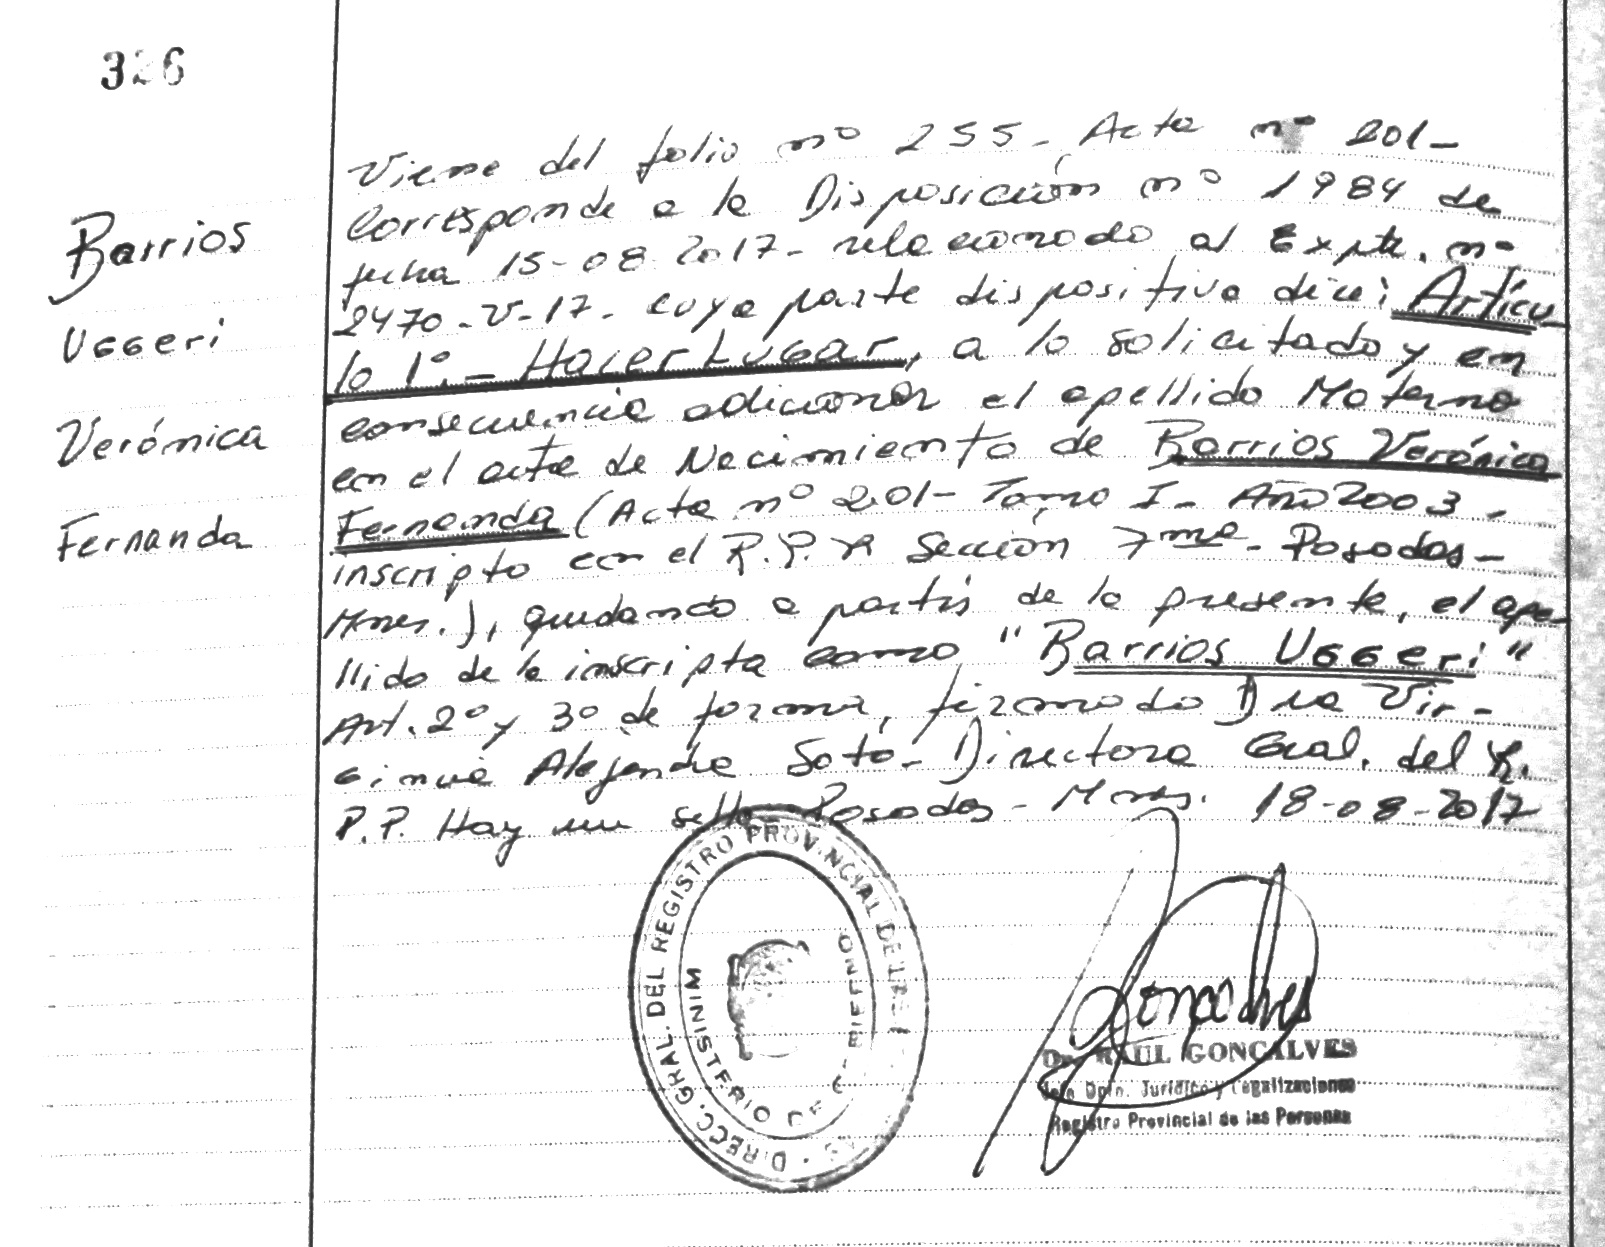 326
Barrios
Uggeri
Verónica
Fernanda
Viene del folio nº 255 - Acta nº 201 -
Corresponde a la Disposición nº 1984 de
fecha 15-08-2017 - relacionado al Expte. nº
2470-V-17 - cuya parte dispositiva dice: Artícu
lo 1º. - Hacer Lugar, a lo solicitado y en
consecuencia adicionar el apellido Materno
en el acta de Nacimiento de Barrios Verónica
Fernanda (Acta nº 201 - Tomo I - Año 2003 -
inscripto en el R.P. Sección 7ma - Posadas -
Mnes.), quedando a partir de la presente, el ape-
llido de la inscripta como "Barrios Uggeri"
Art. 2º y 3º de forma, firmado Dra Vir-
ginia Alejandra Soto - Directora Gral. del R.
P.P. Hay un sello Posadas - Mnes. 18-08-2017
DIRECC. GRAL. DEL REGISTRO PROVINCIAL DE LAS
MINISTERIO DE GOBIERNO
Goncalves
Dr. RAUL GONCALVES
Jefe Dpto. Jurídico y Legalizaciones
Registro Provincial de las Personas